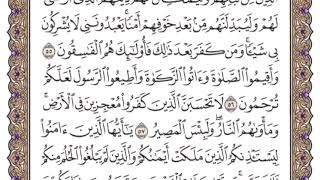 لَهُمْ وَلَيُبَدِّلَنَّهُم مِّنۢ بَعْدِ خَوْفِهِمْ أَمْنًا يَعْبُدُونَنِى لَا يُشْرِكُونَ
بِى شَيْـًٔا وَمَن كَفَرَ بَعْدَ ذَٰلِكَ فَأُو۟لَـٰٓئِكَ هُمُ ٱلْفَـٰسِقُونَ ٥٥
وَأَقِيمُوا۟ ٱلصَّلَوٰةَ وَءَاتُوا۟ ٱلزَّكَوٰةَ وَأَطِيعُوا۟ ٱلرَّسُولَ لَعَلَّكُمْ
تُرْحَمُونَ ٥٦ لَا تَحْسَبَنَّ ٱلَّذِينَ كَفَرُوا۟ مُعْجِزِينَ فِى ٱلْأَرْضِ
وَمَأْوَىٰهُمُ ٱلنَّارُ وَلَبِئْسَ ٱلْمَصِيرُ ٥٧ يَـٰٓأَيُّهَا ٱلَّذِينَ ءَامَنُوا۟
لِيَسْتَـْٔذِنكُمُ ٱلَّذِينَ مَلَكَتْ أَيْمَـٰنُكُمْ وَٱلَّذِينَ لَمْ يَبْلُغُوا۟ ٱلْحُلُمَ مِنكُمْ